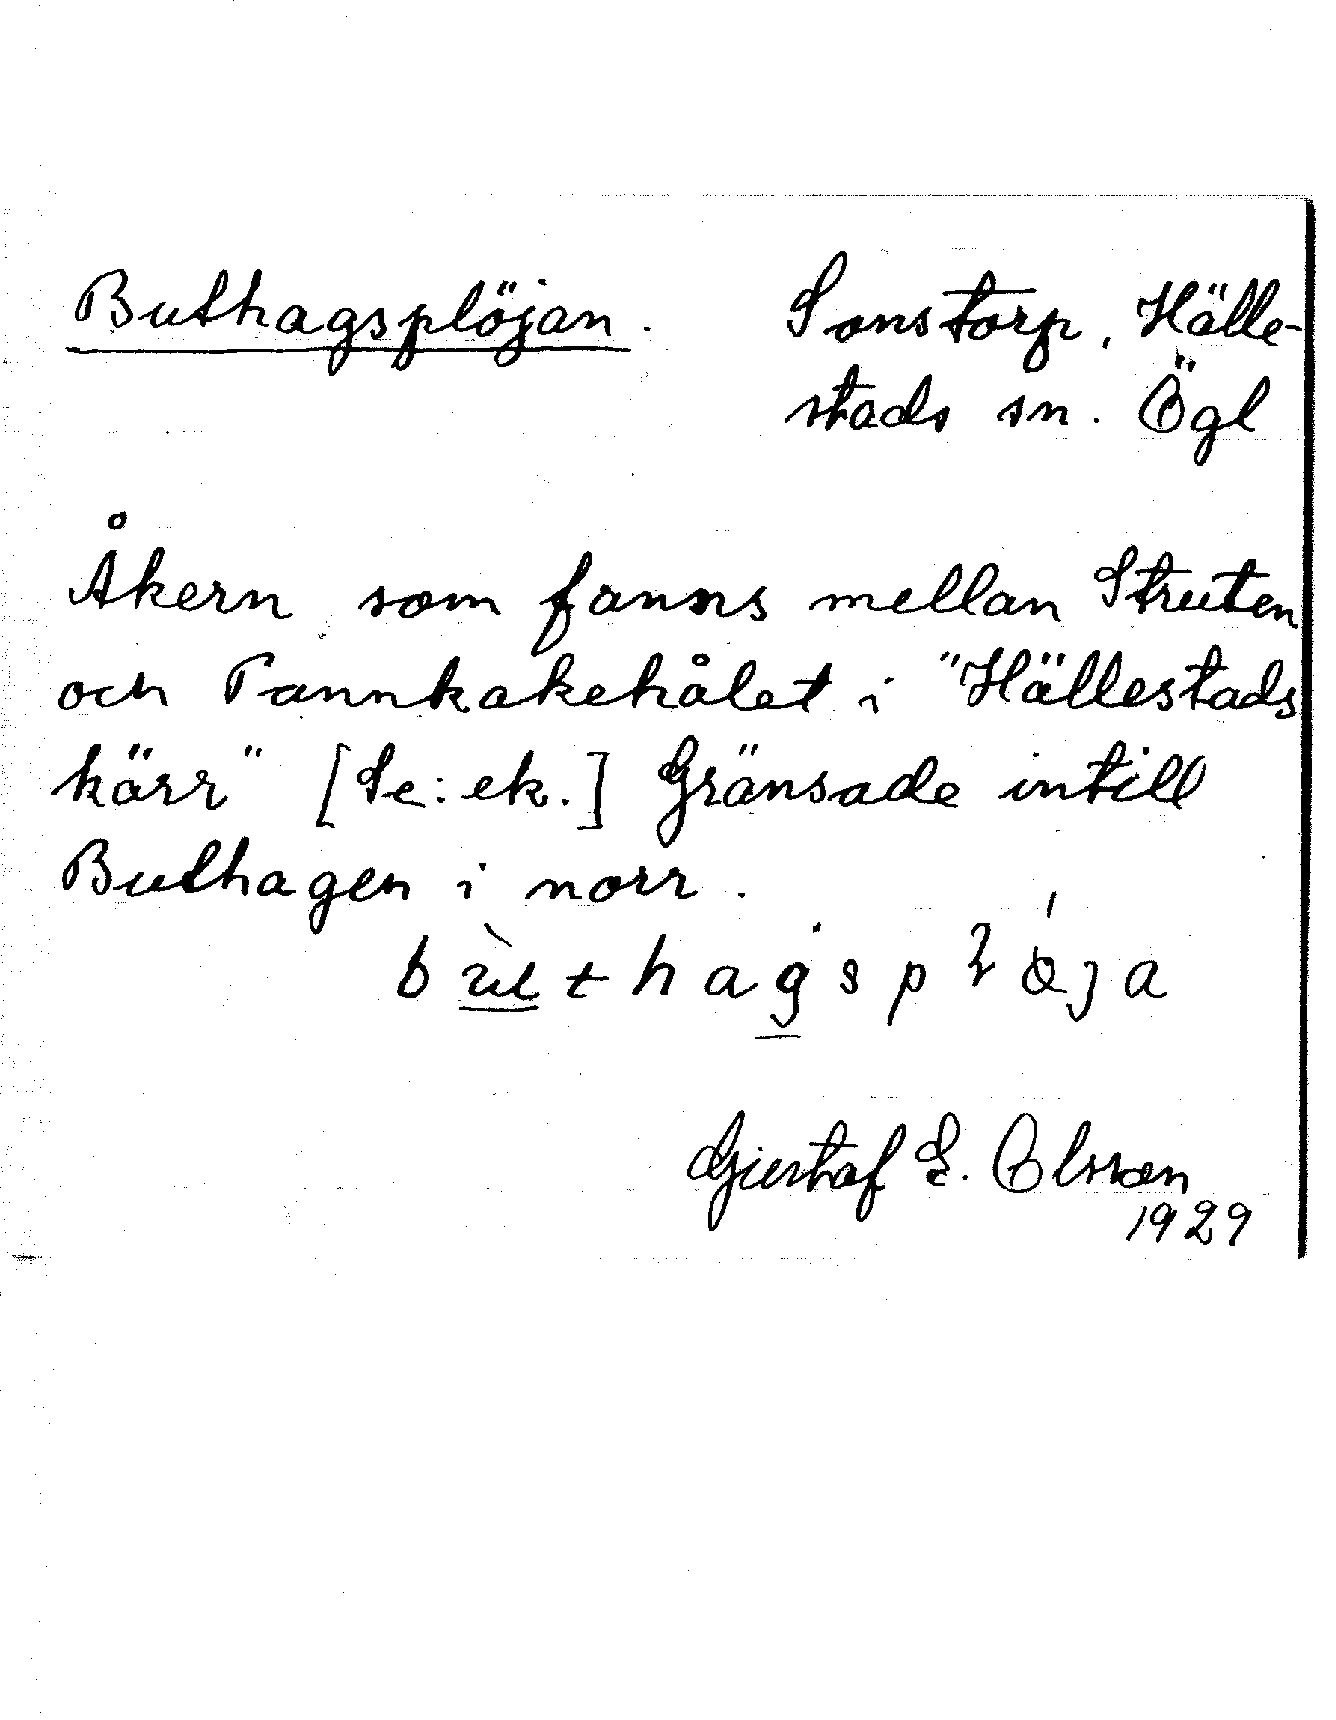 Buthagsplöjan. Sonstorp, Hälle-
stads sn. Ögl
Åkern som fanns mellan Struten
och Pannkakehålet i "Hällestads
kärr" [Se: ek.] Gränsade intill
Buthagen i norr.
Gustaf E. Olsson
1929